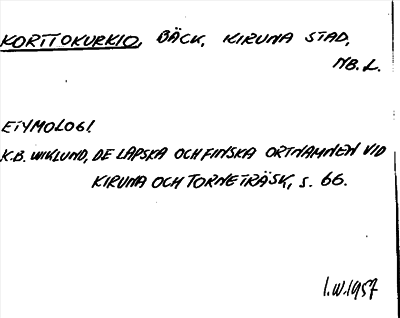 KORTTOKURKIO, BÄCK, KIRUNA STAD,
NB. L.
ETYMOLOGI.
K.B. WIKLUND, DE LAPSKA OCH FINSKA ORTNAMNEN VID
KIRUNA OCH TORNETRÄSK, S. 66.
I.W. 1957